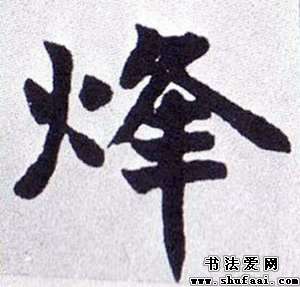 烽
书法爱网
www.shufaai.com